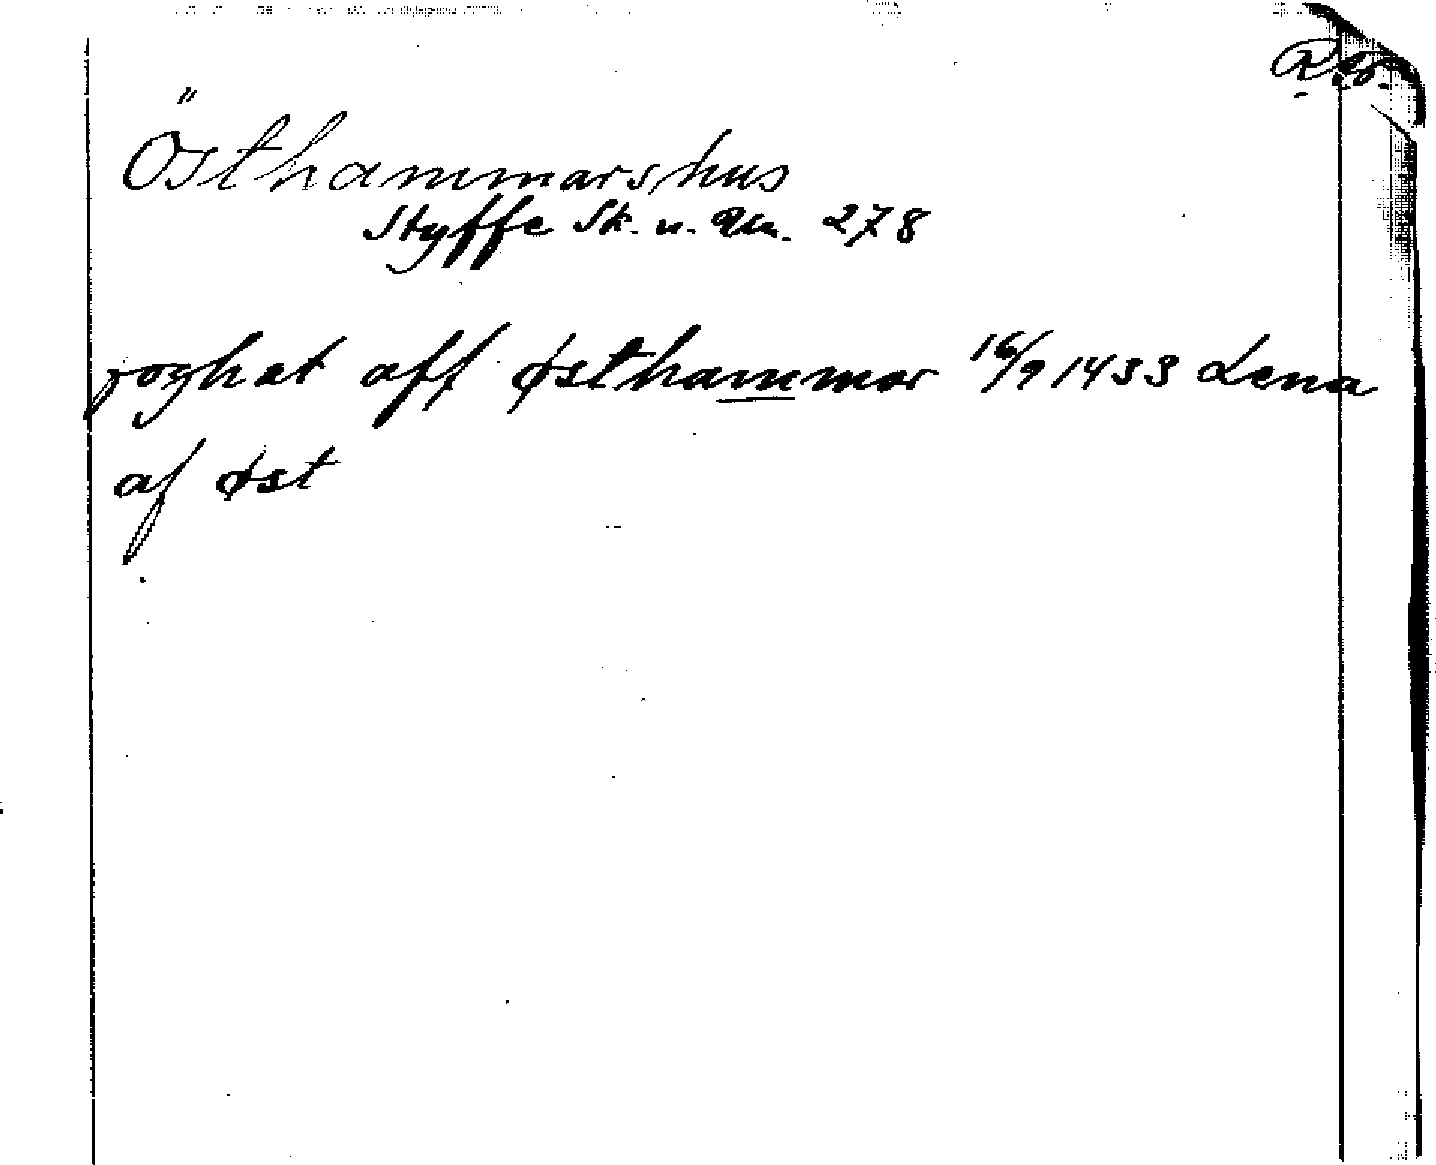 Östhammarshus
Styffe Sk. u. Un. 278
foghat aff østhammar 16/9 1433 Lena
af øst